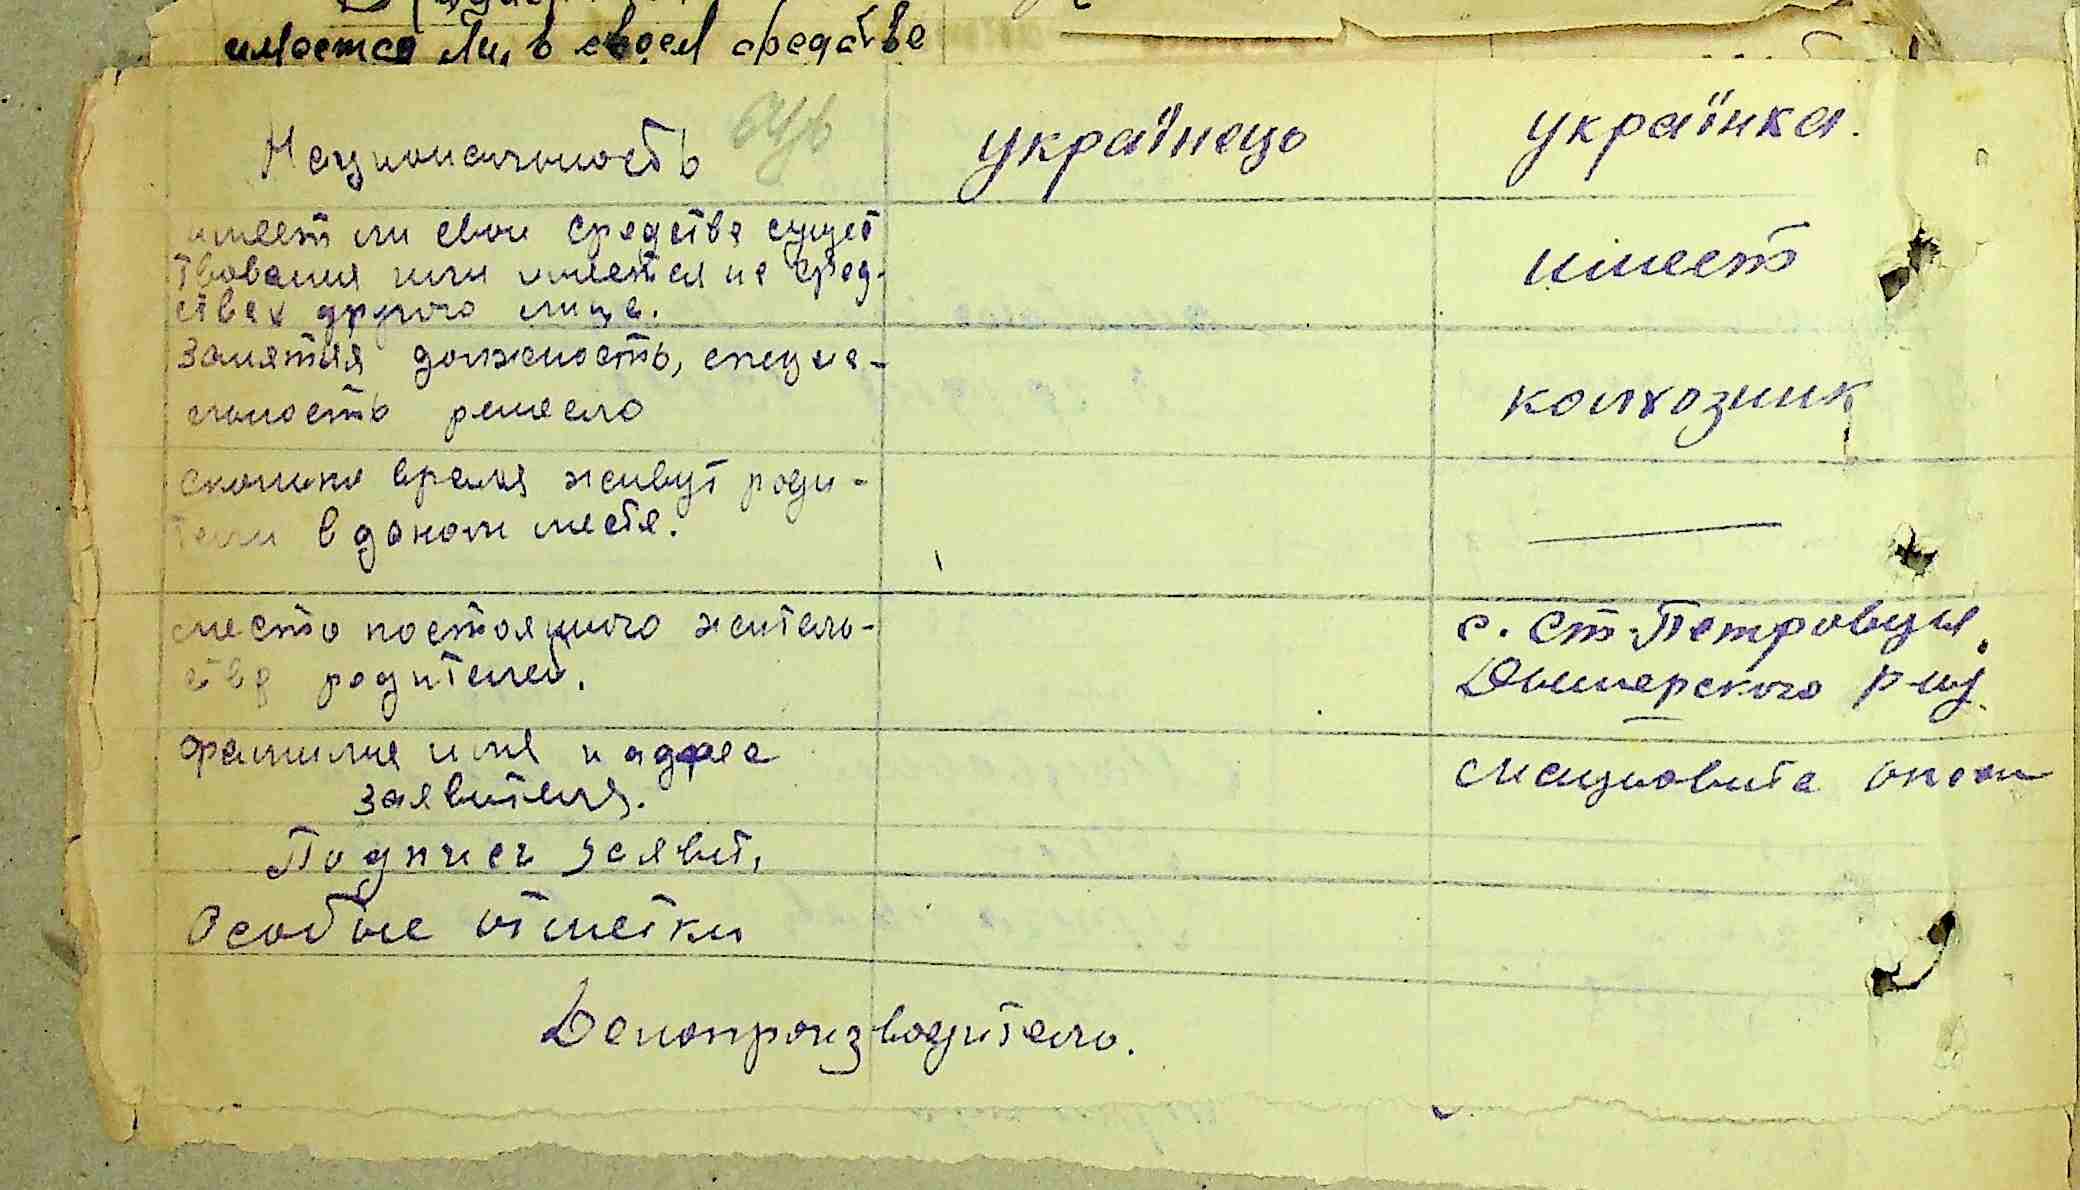 имеется ли, в своем средстве
Национальность українець українка.
имеет ли свои средства сущест
твования или имеется на сред-
ствах другого лица. имеет
занятия должность, специа-
льность ремесло колхозник
сколько время живут роди-
тели в даном месте. —
место постоянного житель-
ства родителей. с. Ст-Петровцы
Дымерского р-ну.
фамилия имя и адрес
заявителя.
Подпись заявит.
Особые отметки
Делопроизводитель.